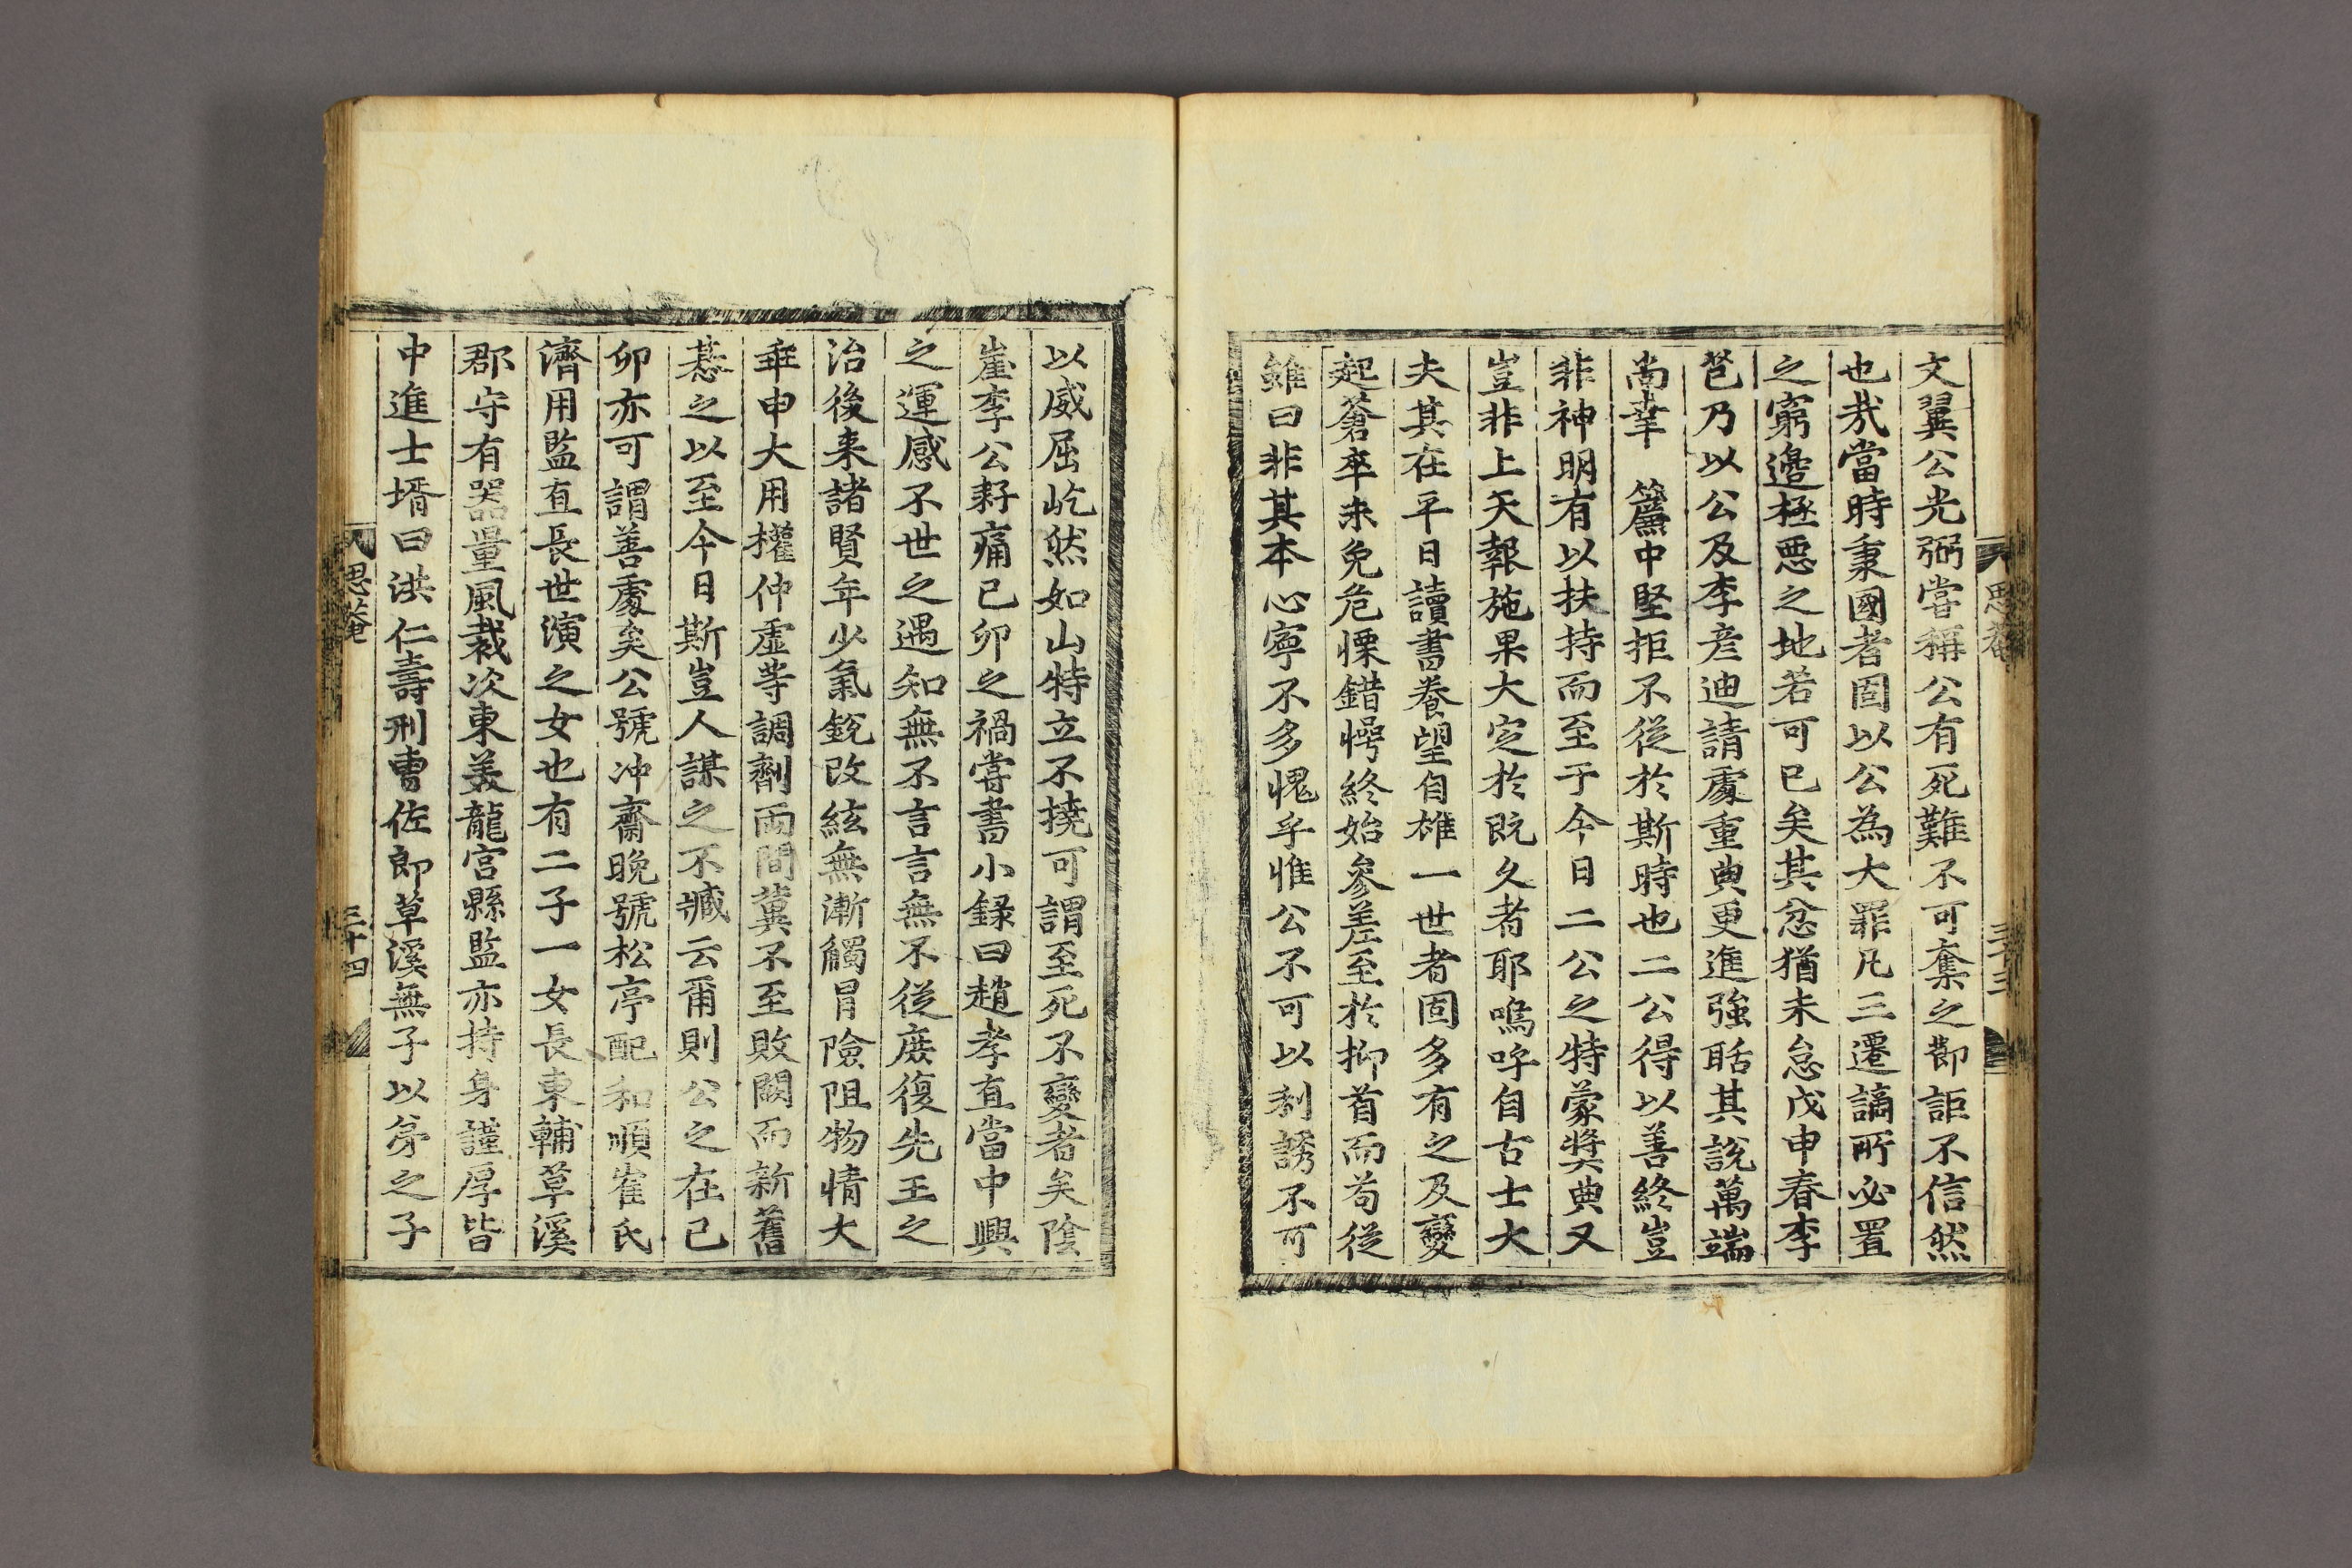 文翼公光弼嘗稱公有死難不可奪之節詎不信然
也哉當時秉國者固以公為大罪凡三遷謫所必置
之窮邉極惡之地若可已矣其忿猶未怠戊申春李
芑乃以公及李彦迪請處重典更進強聒其說萬端
尚幸 簾中堅拒不從於斯時也二公得以善終豈
非神明有以扶持而至于今日二公之特蒙奬典又
豈非上天報施果大定於旣久者耶嗚呼自古士大
夫其在平日讀書養望自雄一世者固多有之及變
起蒼卒未免危慄錯愕終始參差至於抑首而苟從
雖曰非其本心寧不多愧乎惟公不可以利誘不可
思菴
三十三
以威屈屹然如山特立不撓可謂至死不變者矣陰
崖李公耔痛己卯之禍嘗書小録曰趙孝直當中興
之運感不世之遇知無不言言無不從庶復先王之
治後来諸賢年少氣銳改絃無漸觸冐險阻物情大
乖申大用權仲虛等調劑兩間冀不至敗闕而新舊
惎之以至今日斯豈人謀之不臧云爾則公之在己
卯亦可謂善處矣公號冲齋晚號松亭配和順崔氏
濟用監直長世演之女也有二子一女長東輔草溪
郡守有器量風裁次東美龍宮縣監亦持身謹厚皆
中進士壻曰洪仁壽刑曹佐郎草溪無子以弟之子
思菴
三十四